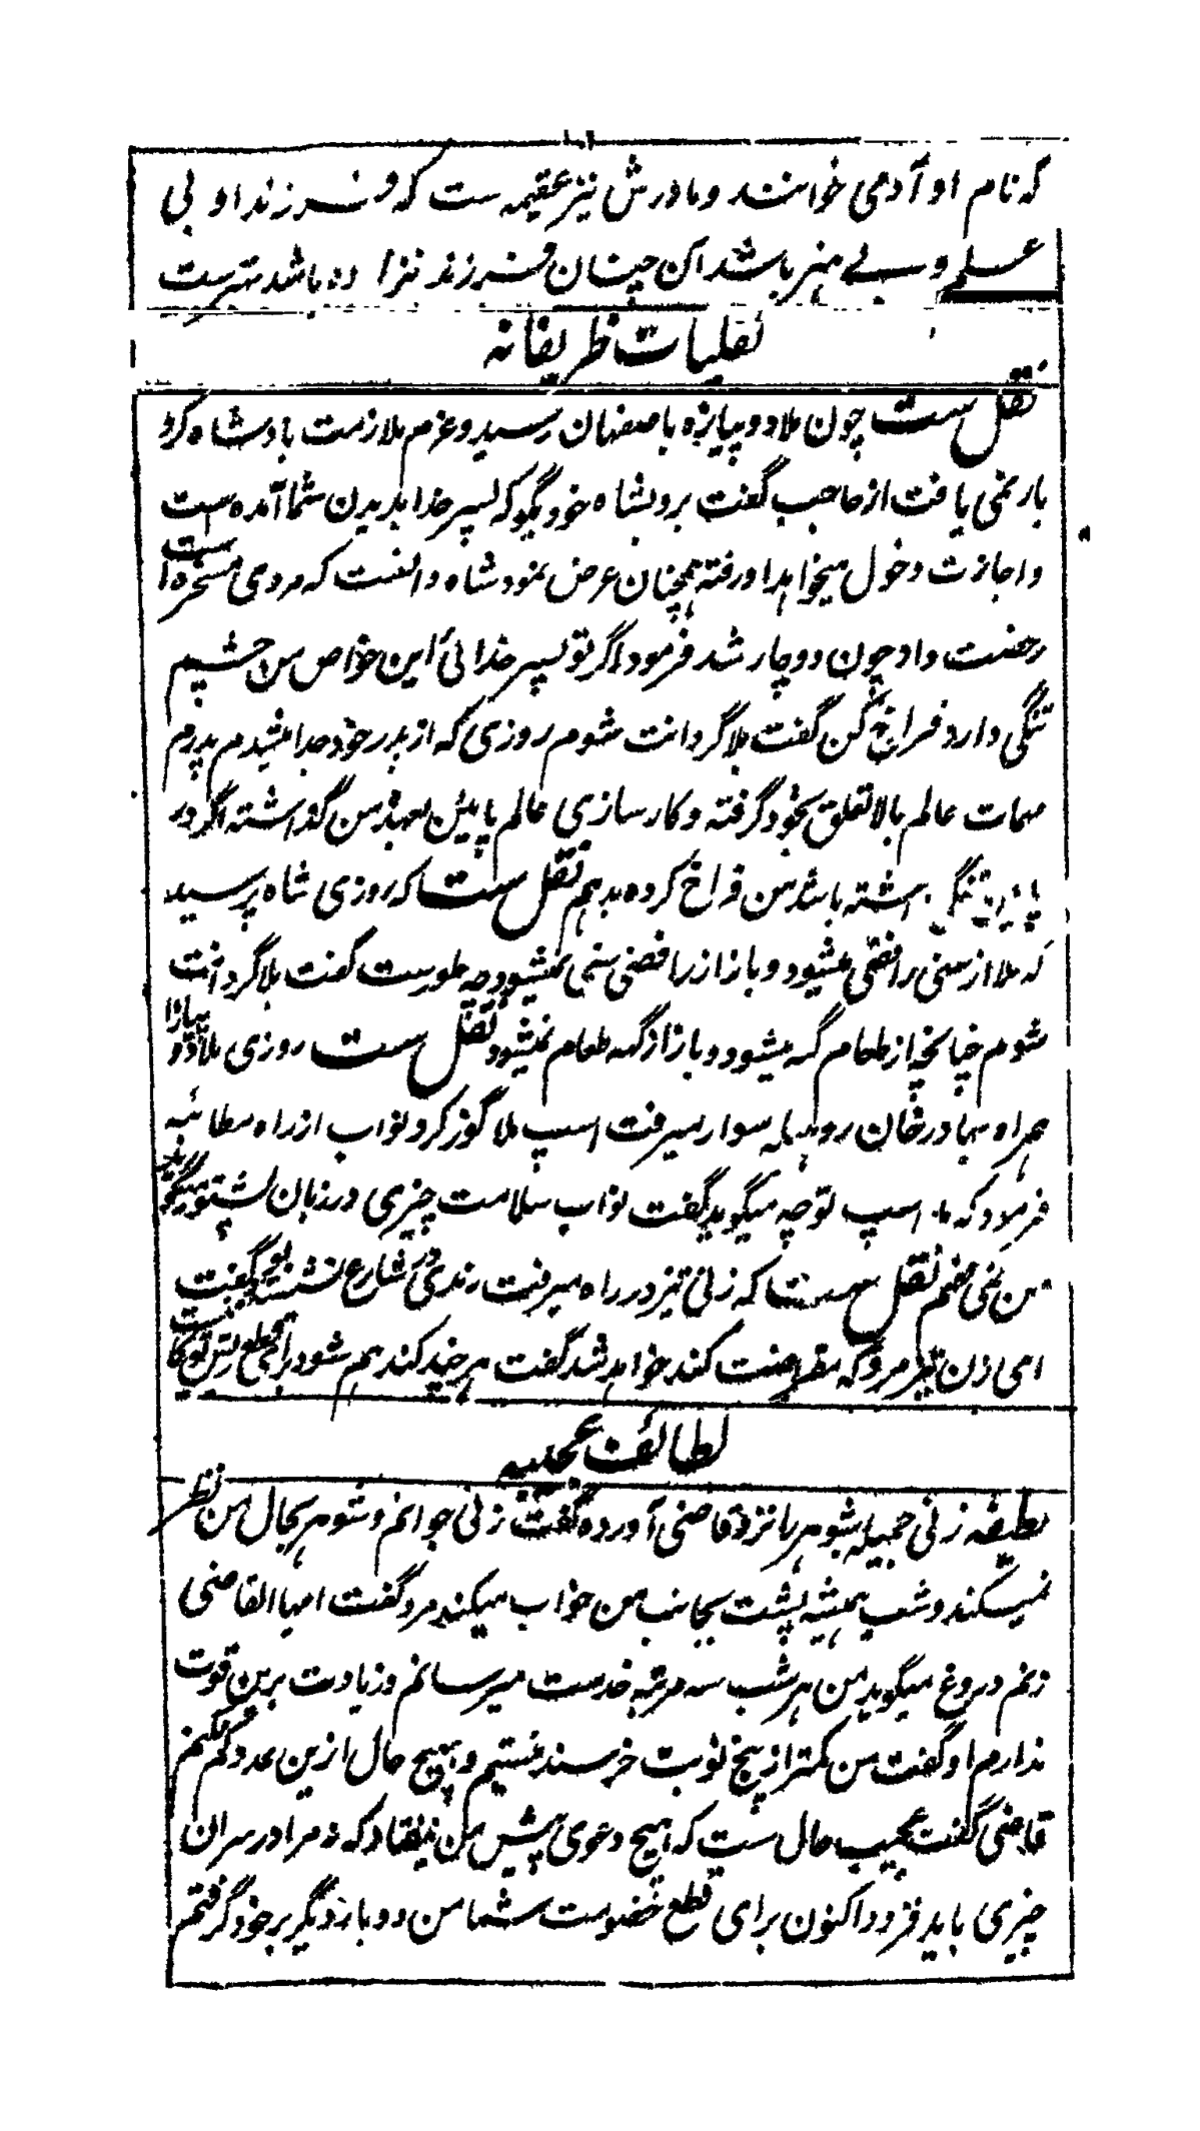 که نام او آدمی خوانند و مادرش نیز عقیمه ست که فرزند او بی
علم و بی هنر باشد آن چنان فرزند نزا ده باشد بهترست
نقلیات ظریفانه
نقل ست چون ملا دوپیازه باصفهان رسید و عزم ملازمت بادشاه کرد
بار نمی یافت از حاجب گفت برو بشاه خود بگو که پسر خدا بدیدن شما آمده است
و اجازت دخول میخواهد او رفته همچنان عرض نمود شاه دانست که مردی مسخره است
رخصت داد چون دوچار شد فرمود اگر تو پسر خدائی این خواص من چشم
تنگی دارد فراخ کن گفت بلا گردانت شوم روزی که از پدر خود جدا میشدم پدرم
مهمات عالم بالا تعلق بخود گرفته و کارسازی عالم پایین بعهده من گذاشته اگر در
پایین تنگی داشته باشد من فراخ کرده بدهم نقل ست که روزی شاه پرسید
که ملا از سنی رافضی میشود و باز از رافضی سنی نمیشود چه طورست گفت بلا گردانت
شوم چنانچه از طعام گه میشود و باز از گه طعام نمیشود نقل ست روزی ملا دو پیازه
همراه بهادر خان روهیله سوار میرفت اسپ ملا گوز کرد نواب از راه مطائبه
فرمود که ملا اسپ تو چه میگوید گفت نواب سلامت چیزی در زبان پشتو میگوید
من نمی فهمم نقل ست که زنی تیز در راه میرفت رندی در شارع نشسته بود گفت
ای زن تیز مرو که مقراضت کند خواهد شد گفت هر چند کند هم شود برای
لطائف عجیبه
لطیفه زنی جمیله شوهر را نزد قاضی آورده گفت زنی جوانم و شوهر بحال من نظر
نمیکند و شب همیشه پشت بجانب من خواب میکند مرد گفت ایها القاضی
زنم دروغ میگوید من هر شب سه مرتبه خدمت میرسانم و زیادت برین قوت
ندارم او گفت من کمتر از پنج نوبت خرسند نیستم و بهیچ حال ازین عدد کم نکنم
قاضی گفت عجیب حال ست که هیچ دعوی پیش من نیفتاد که نه مرا در سر آن
چیزی باید فزود اکنون برای قطع خصومت شما من دو بار دیگر بر خود گرفتم